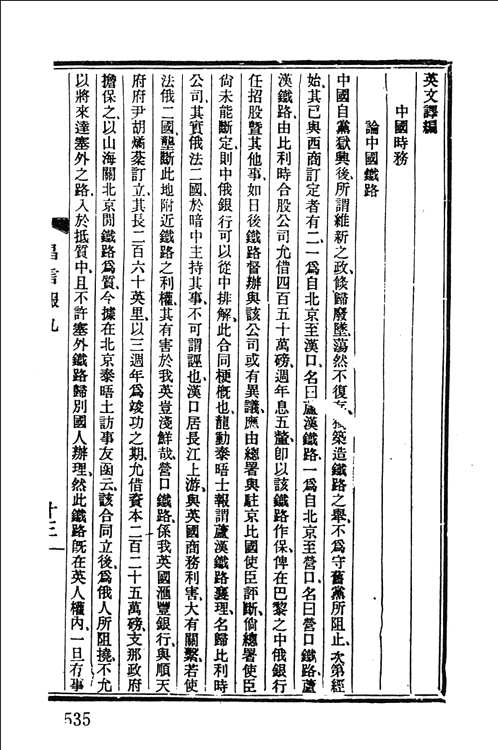 英文譯編
中國時務
論中國鐵路
中國自黨獄興後、所謂維新之政、倐歸廢墜、蕩然不復存、築造鐵路之舉、不爲守舊黨所阻止、次第經
始、其已與西商訂定者有二、一爲自北京至漢口、名曰蘆漢鐵路、一爲自北京至營口、名曰營口鐵路、蘆
漢鐵路、由比利時合股公司、允借四百五十萬磅、週年息五釐、卽以該鐵路作保、俾在巴黎之中俄銀行
任招股暨其他事、如日後鐵路督辦與該公司或有異議、應由總署與駐京比國使臣評斷、倘總署使臣
尙未能斷定、則中俄銀行可以從中排解、此合同梗概也、龍動泰晤士報謂蘆漢鐵路襄理、名歸比利時
公司、其實俄法二國、於暗中主持其事、不可謂誣也、漢口居長江上游、與英國商務利害、大有關繫、若使
法俄二國、壟斷此地附近鐵路之利權、其有害於我英、豈淺鮮哉、營口鐵路、係我英國滙豐銀行、與順天
府府尹胡燏棻訂立、其長二百六十英里、以三週年爲竣功之期、允借資本二百二十五萬磅、支那政府
擔保之、以山海關北京閒鐵路爲質、今據在北京泰晤士訪事友函云、該合同立後、爲俄人所阻撓、不允
以將來達塞外之路、入於抵質中、且不許塞外鐵路歸別國人辦理、然此鐵路旣在英人權內、一旦有事
昌言報九
十三
535